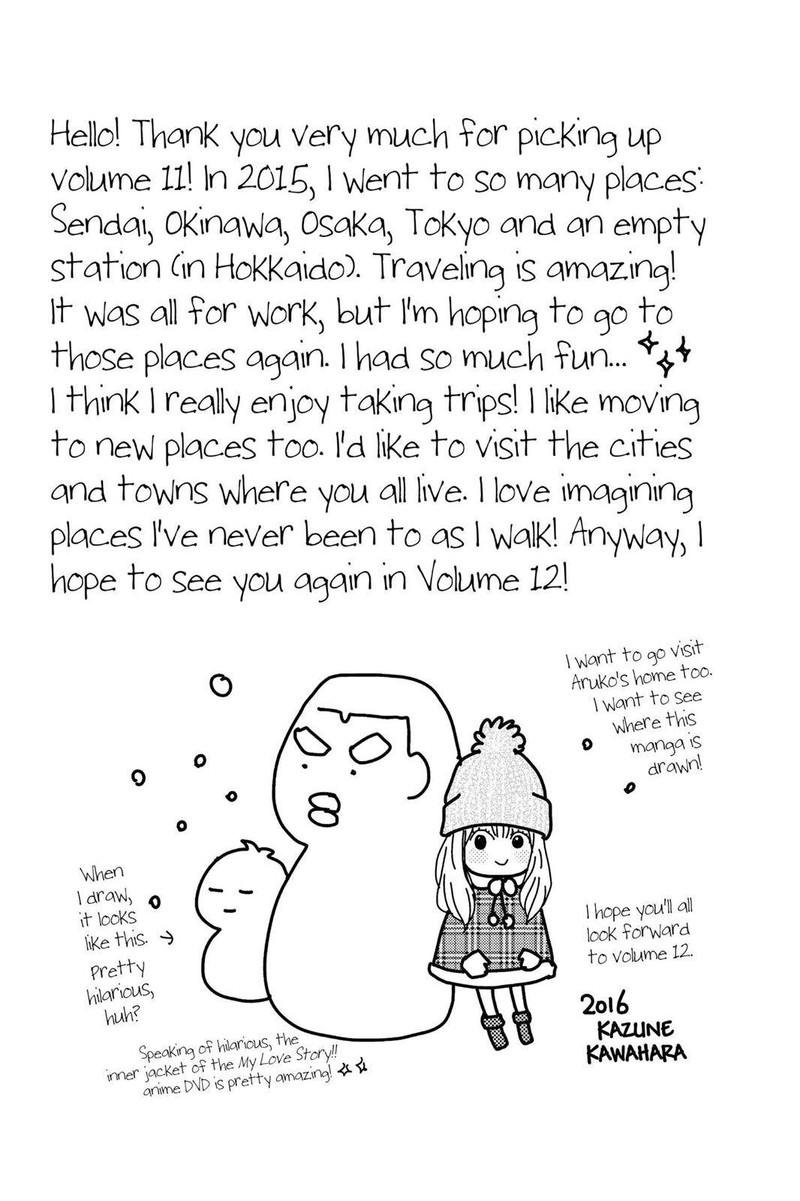 Hello! Thank you very much for picking up
volume 11! In 2015, I went to so many places:
Sendai, Okinawa, Osaka, Tokyo and an empty
station (in Hokkaido). Traveling is amazing!
It was all for work, but I'm hoping to go to
those places again. I had so much fun...
I think I really enjoy taking trips! I like moving
to new places too. I'd like to visit the cities
and towns where you all live. I love imagining
places I've never been to as I walk! Anyway, I
hope to see you again in Volume 12!
I want to go visit
Aruko's home too.
I want to see
where this
manga is
drawn!
When
I draw,
it looks
like this. →
Pretty
hilarious,
huh?
I hope you'll all
look forward
to volume 12.
2016
KAZUNE
KAWAHARA
Speaking of hilarious, the
inner jacket of the My Love Story!!
anime DVD is pretty amazing!